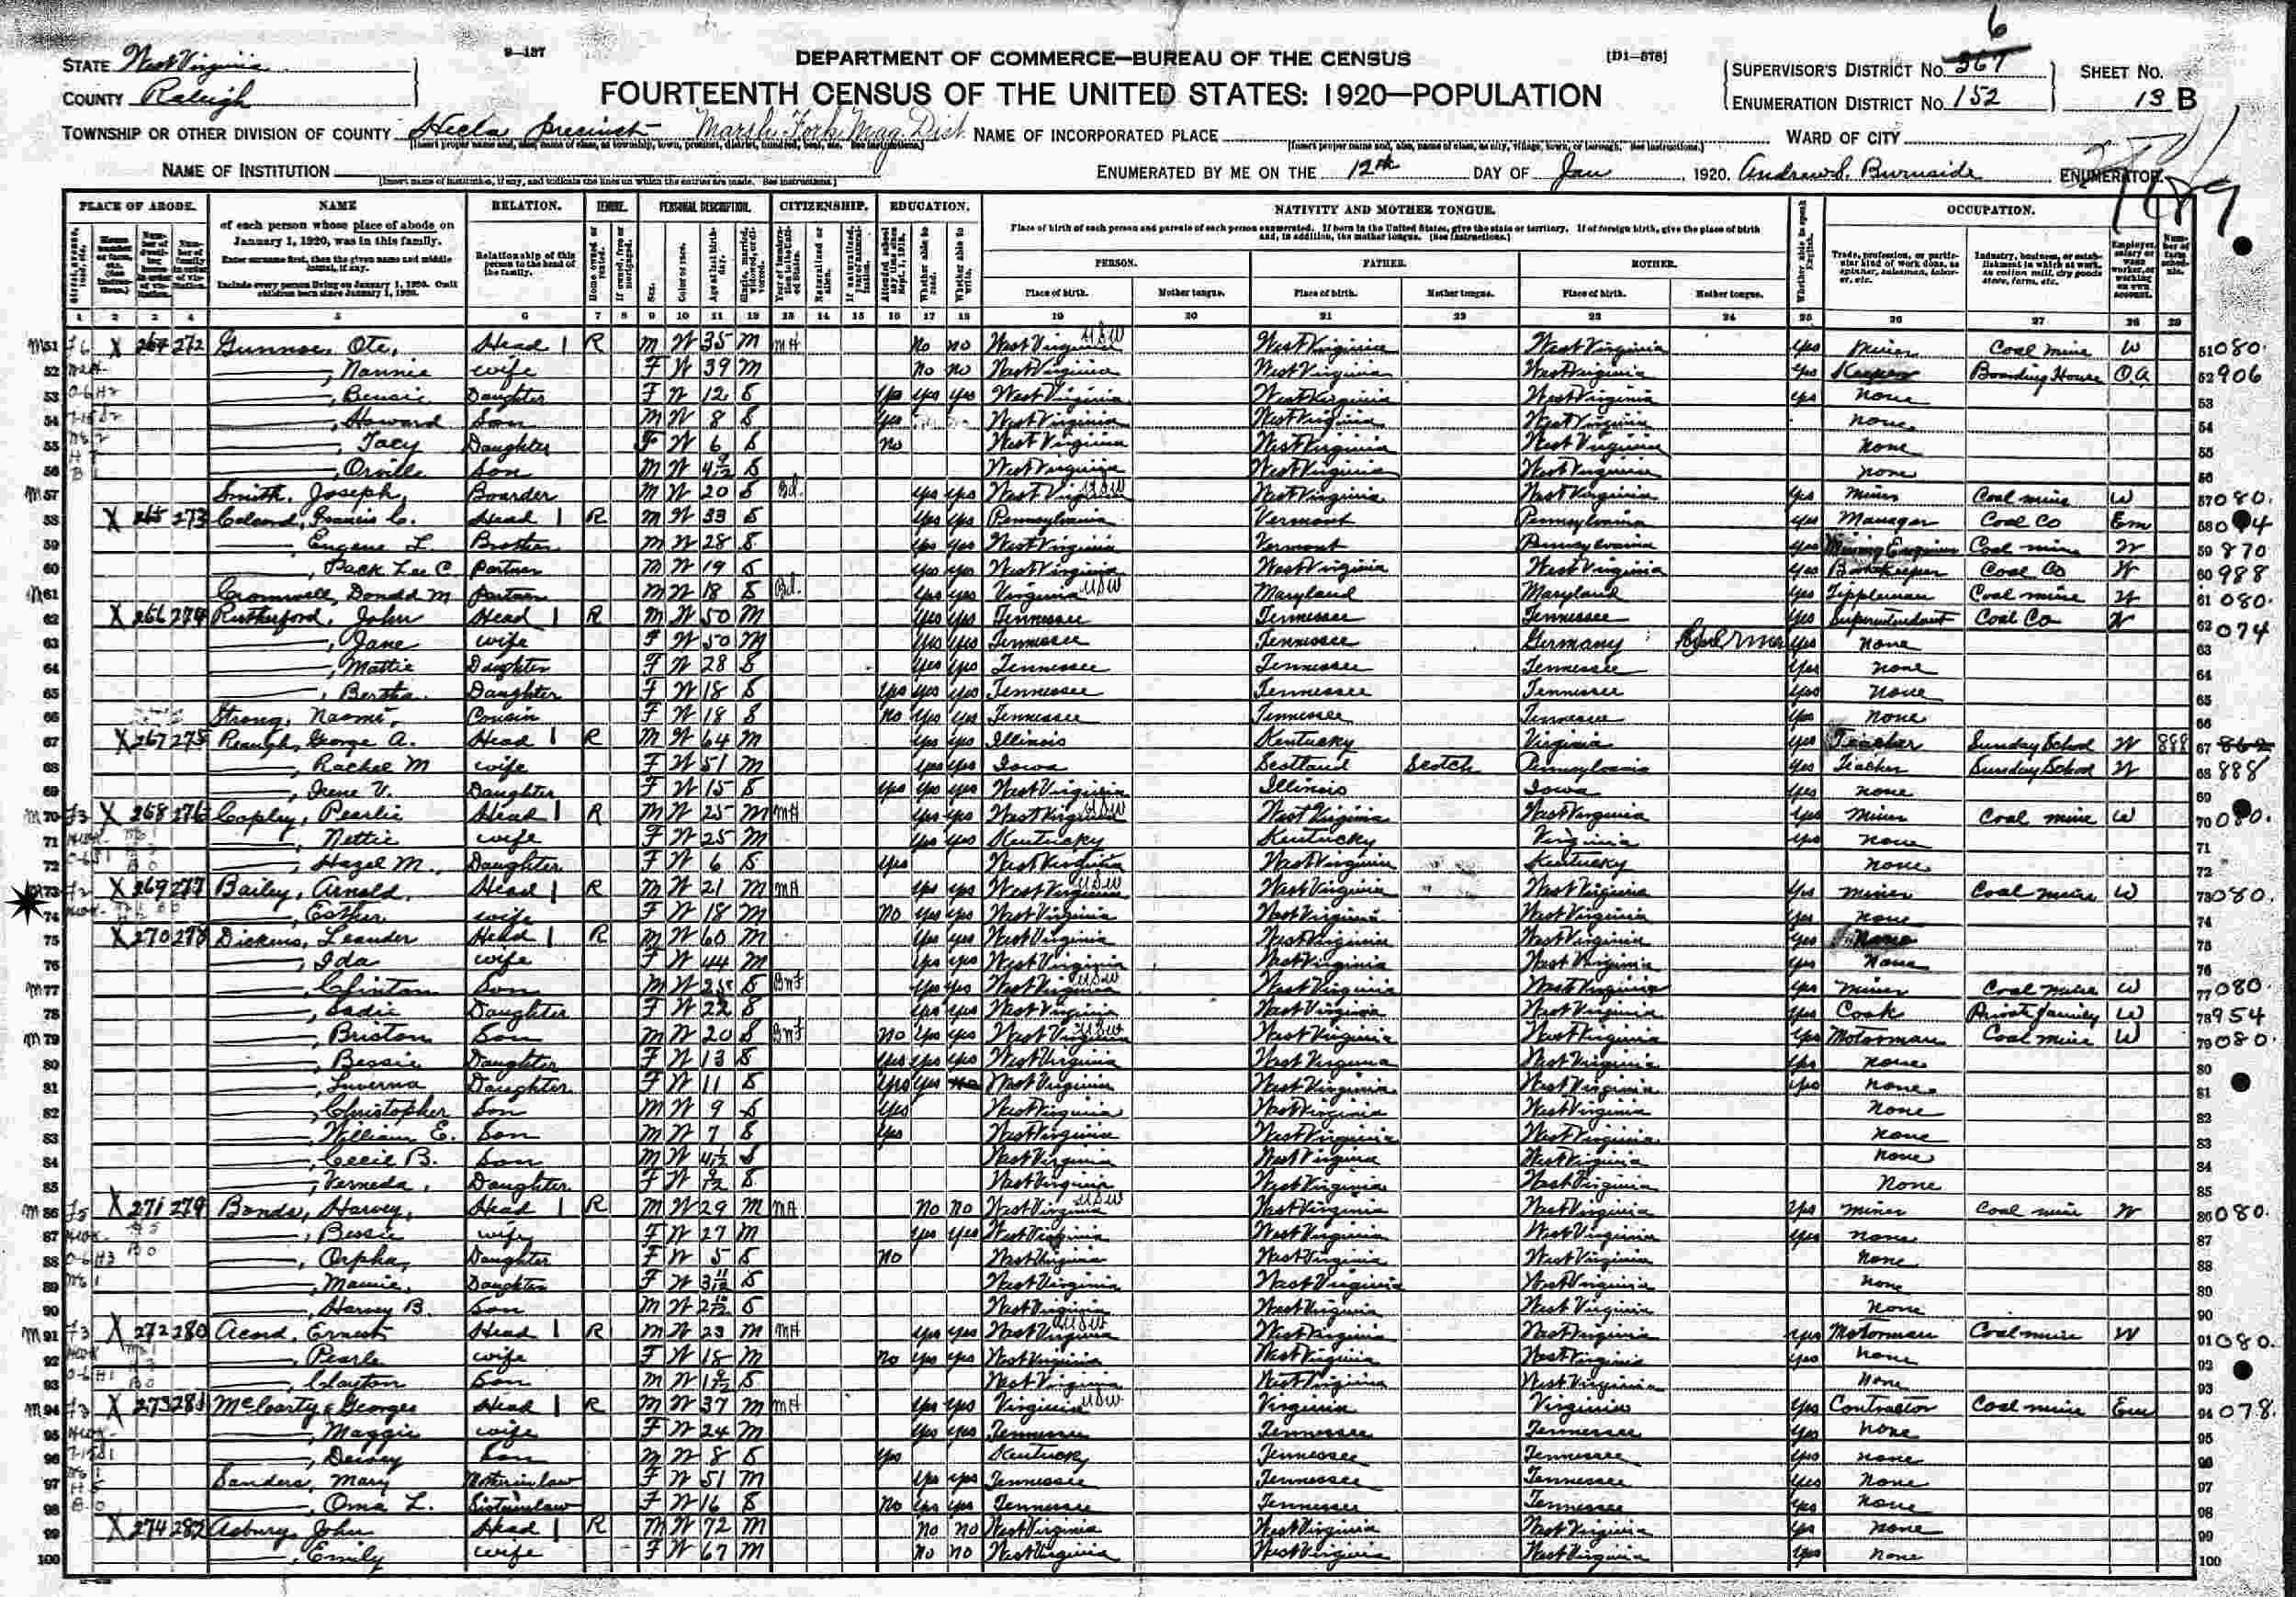 6
STATE West Virginia
9—137
DEPARTMENT OF COMMERCE—BUREAU OF THE CENSUS
[D1—578]
SUPERVISOR'S DISTRICT No. 367
SHEET No.
COUNTY Raleigh
FOURTEENTH CENSUS OF THE UNITED STATES: 1920—POPULATION
ENUMERATION DISTRICT No. 152
13 B
TOWNSHIP OR OTHER DIVISION OF COUNTY Hecla Precinct Marsh Fork Mag. Dist
NAME OF INCORPORATED PLACE
WARD OF CITY
NAME OF INSTITUTION
ENUMERATED BY ME ON THE 12th DAY OF Jan, 1920. Andrew S. Burnside ENUMERATOR.
PLACE OF ABODE. NAME RELATION. TENURE. PERSONAL DESCRIPTION. CITIZENSHIP. EDUCATION. NATIVITY AND MOTHER TONGUE. OCCUPATION.
of each person whose place of abode on January 1, 1920, was in this family.
Enter surname first, then the given name and middle initial, if any.
Include every person living on January 1, 1920. Omit children born since January 1, 1920.
Relationship of this person to the head of the family.
Place of birth of each person and parents of each person enumerated. If born in the United States, give the state or territory. If of foreign birth, give the place of birth and, in addition, the mother tongue. (See instructions.)
PERSON. FATHER. MOTHER.
Place of birth. Mother tongue. Place of birth. Mother tongue. Place of birth. Mother tongue.
1 2 3 4 5 6 7 8 9 10 11 12 13 14 15 16 17 18 19 20 21 22 23 24 25 26 27 28 29
51 X 264 272 Gunnoe, Ote, Head 1 R M W 35 M No no West Virginia West Virginia West Virginia Yes Miner Coal mine W 51 080.
52 Nannie wife F W 39 M No no West Virginia West Virginia West Virginia Yes Keeper Boarding House OA 52 906
53 Daughter F W 12 S Yes yes yes West Virginia West Virginia West Virginia yes none 53
54 Howard Son M W 8 S Yes West Virginia West Virginia West Virginia none 54
55 Tacy Daughter F W 6 S no West Virginia West Virginia West Virginia none 55
56 Orville Son M W 4 9/12 S West Virginia West Virginia West Virginia none 56
57 Smith, Joseph, Boarder M W 20 S Bd. yes yes West Virginia West Virginia West Virginia Yes Miner Coal mine W 57 080.
58 X 265 273 Colcord, Francis C. Head 1 R M W 33 S Yes Yes Pennsylvania Vermont Pennsylvania yes Manager Coal Co Em 58
59 Eugene L Brother M W 28 S yes yes West Virginia Vermont Pennsylvania Yes Mining Engineer Coal mine W 59 870
60 Pack Lee C. Partner M W 19 S yes yes West Virginia West Virginia West Virginia Yes Bookkeeper Coal Co W 60 988
61 Cromwell, Donald M Partner M W 18 S Bd. yes yes Virginia Maryland Maryland Yes Tippleman Coal mine W 61 080.
62 X 266 274 Rutherford, John Head 1 R M W 50 M Yes yes Tennessee Tennessee Tennessee Yes Superintendant Coal Co W 62 074
63 Jane wife F W 50 M Yes yes Tennessee Tennessee Germany German Yes none 63
64 Mattie Daughter F W 28 S Yes yes Tennessee Tennessee Tennessee Yes none 64
65 Bertha. Daughter F W 18 S Yes yes yes Tennessee Tennessee Tennessee Yes none 65
66 Strong, Naomi, Cousin F W 18 S no Yes yes Tennessee Tennessee Tennessee Yes none 66
67 X 267 275 Reaugh, George A. Head 1 R M W 64 M yes yes Illinois Kentucky Virginia yes Teacher Sunday School W 888 67 862
68 Rachel M wife F W 51 M yes yes Iowa Scotland Scotch Pennsylvania Yes Teacher Sunday School W 68 888
69 Irene V. Daughter F W 15 S yes yes yes West Virginia Illinois Iowa Yes none 69
70 X 268 276 Copley, Pearlie Head 1 R M W 25 M yes yes West Virginia West Virginia West Virginia Yes Miner Coal mine W 70 080.
71 Nettie wife F W 25 M Yes yes Kentucky Kentucky Virginia yes none 71
72 Hazel M., Daughter F W 6 S Yes West Virginia West Virginia Kentucky none 72
73 X 269 277 Bailey, Arnold. Head 1 R M W 21 M yes yes West Virginia West Virginia West Virginia Yes miner Coal mine W 73 080.
74 Esther wife F W 18 M no yes yes West Virginia West Virginia West Virginia Yes none 74
75 X 270 278 Dickens, Leander Head 1 R M W 60 M Yes yes West Virginia West Virginia West Virginia Yes None 75
76 Ida wife F W 44 M yes yes West Virginia West Virginia West Virginia Yes None 76
77 Clinton Son M W 25 S yes yes West Virginia West Virginia West Virginia yes miner Coal mine W 77 080
78 Sadie Daughter F W 22 S yes yes West Virginia West Virginia West Virginia Yes Cook Private family W 78 954
79 Briston Son M W 20 S no yes yes West Virginia West Virginia West Virginia Yes Motorman Coal mine W 79 080.
80 Bessie Daughter F W 13 S yes yes yes West Virginia West Virginia West Virginia Yes none 80
81 Luverna Daughter F W 11 S Yes Yes West Virginia West Virginia West Virginia Yes none 81
82 Christopher Son M W 9 S Yes West Virginia West Virginia West Virginia None 82
83 William E. Son M W 7 S Yes West Virginia West Virginia West Virginia none 83
84 Cecil B. Son M W S West Virginia West Virginia West Virginia none 84
85 Verneda, Daughter F W S West Virginia West Virginia West Virginia None 85
86 X 271 279 Bonds, Harvey, Head 1 R M W 29 M No no West Virginia West Virginia West Virginia Yes miner Coal mine W 86 080.
87 Bessie wife F W 27 M yes yes West Virginia West Virginia West Virginia Yes none 87
88 Orpha, Daughter F W 5 S no West Virginia West Virginia West Virginia none 88
89 Mamie, Daughter F W 3 11/12 S West Virginia West Virginia West Virginia none 89
90 Harvey B. Son M W S West Virginia West Virginia West Virginia None 90
91 X 272 280 Acord, Ernest Head 1 R M W 23 M yes yes West Virginia West Virginia West Virginia yes Motorman Coal mine W 91 080.
92 Pearle wife F W 18 M no yes yes West Virginia West Virginia West Virginia yes none
93 Clayton Son M W S West Virginia West Virginia West Virginia None 93
94 X 273 281 McCarty, George Head 1 R M W 37 M yes yes Virginia Virginia Virginia Yes Contractor Coal mine Em 94 078.
95 Maggie wife F W 24 M yes yes Tennessee Tennessee Tennessee Yes none 95
96 Son M W 8 S yes Kentucky Tennessee Tennessee Yes none 96
97 Sanders, Mary Mother in law F W 51 M yes yes Tennessee Tennessee Tennessee Yes None 97
98 Oma L. Sister in law F W 16 S No yes yes Tennessee Tennessee Tennessee Yes none 98
99 X 274 282 Asbury, John Head 1 R M W 72 M no no West Virginia West Virginia West Virginia Yes none 99
100 Emily wife F W 67 M no no West Virginia West Virginia West Virginia Yes none 100